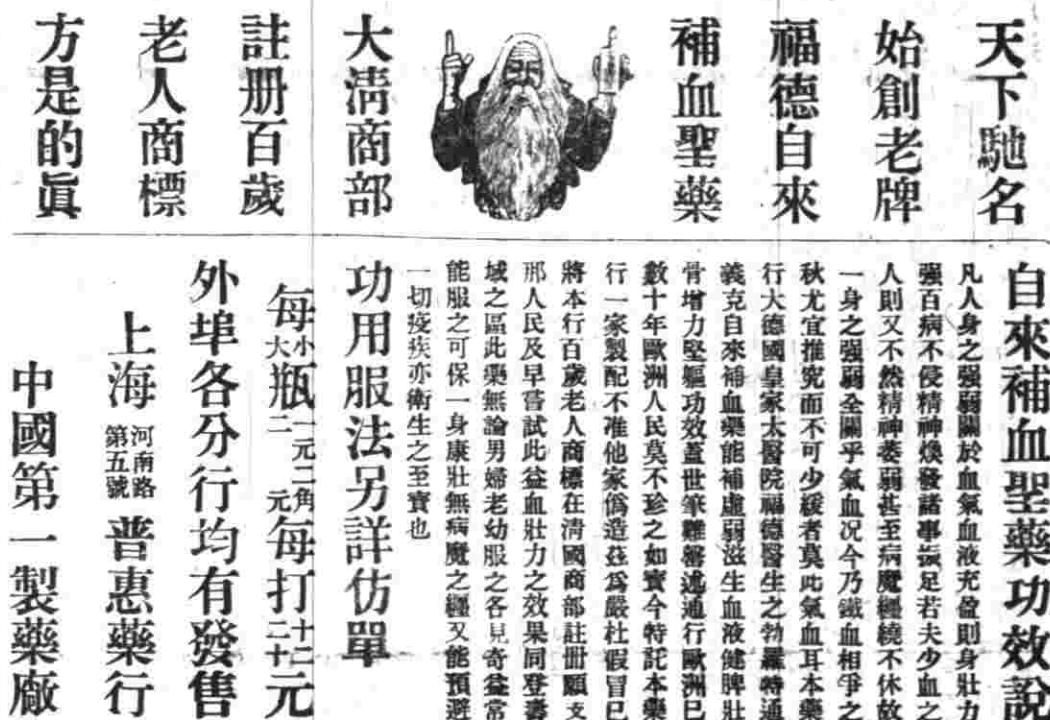 天下馳名
始創老牌
福德自來
補血聖藥
大清商部
註册百歲
老人商標
方是的眞
自來補血聖藥功效說
凡人身之强弱關於血氣血液充盈則身壯力
强百病不侵精神煥發諸事振足若夫少血之
人則又不然精神萎弱甚至病魔纏繞不休故
一身之强弱全關乎氣血况今乃鐵血相爭之
秋尤宜推究而不可少緩者莫此氣血耳本藥
行大德國皇家太醫院福德醫生之勃羅特通
義克自來補血藥能補虛弱滋生血液健脾壯
骨增力堅軀功效蓋世筆難罄述通行歐洲已
數十年歐洲人民莫不珍之如寶今特託本藥
行一家製配不准他家僞造茲爲嚴杜假冒已
將本行百歲老人商標在清國商部註册願支
那人民及早嘗試此益血壯力之效果同登壽
域之區此藥無論男婦老幼服之各見奇益常
能服之可保一身康壯無病魔之纏又能預避
一切疫疾亦衛生之至寶也
功用服法另詳仿單
每小瓶一元二角每打十二元
大二元二十
外埠各分行均有發售
上海河南路第五號普惠藥行
中國第一製藥廠